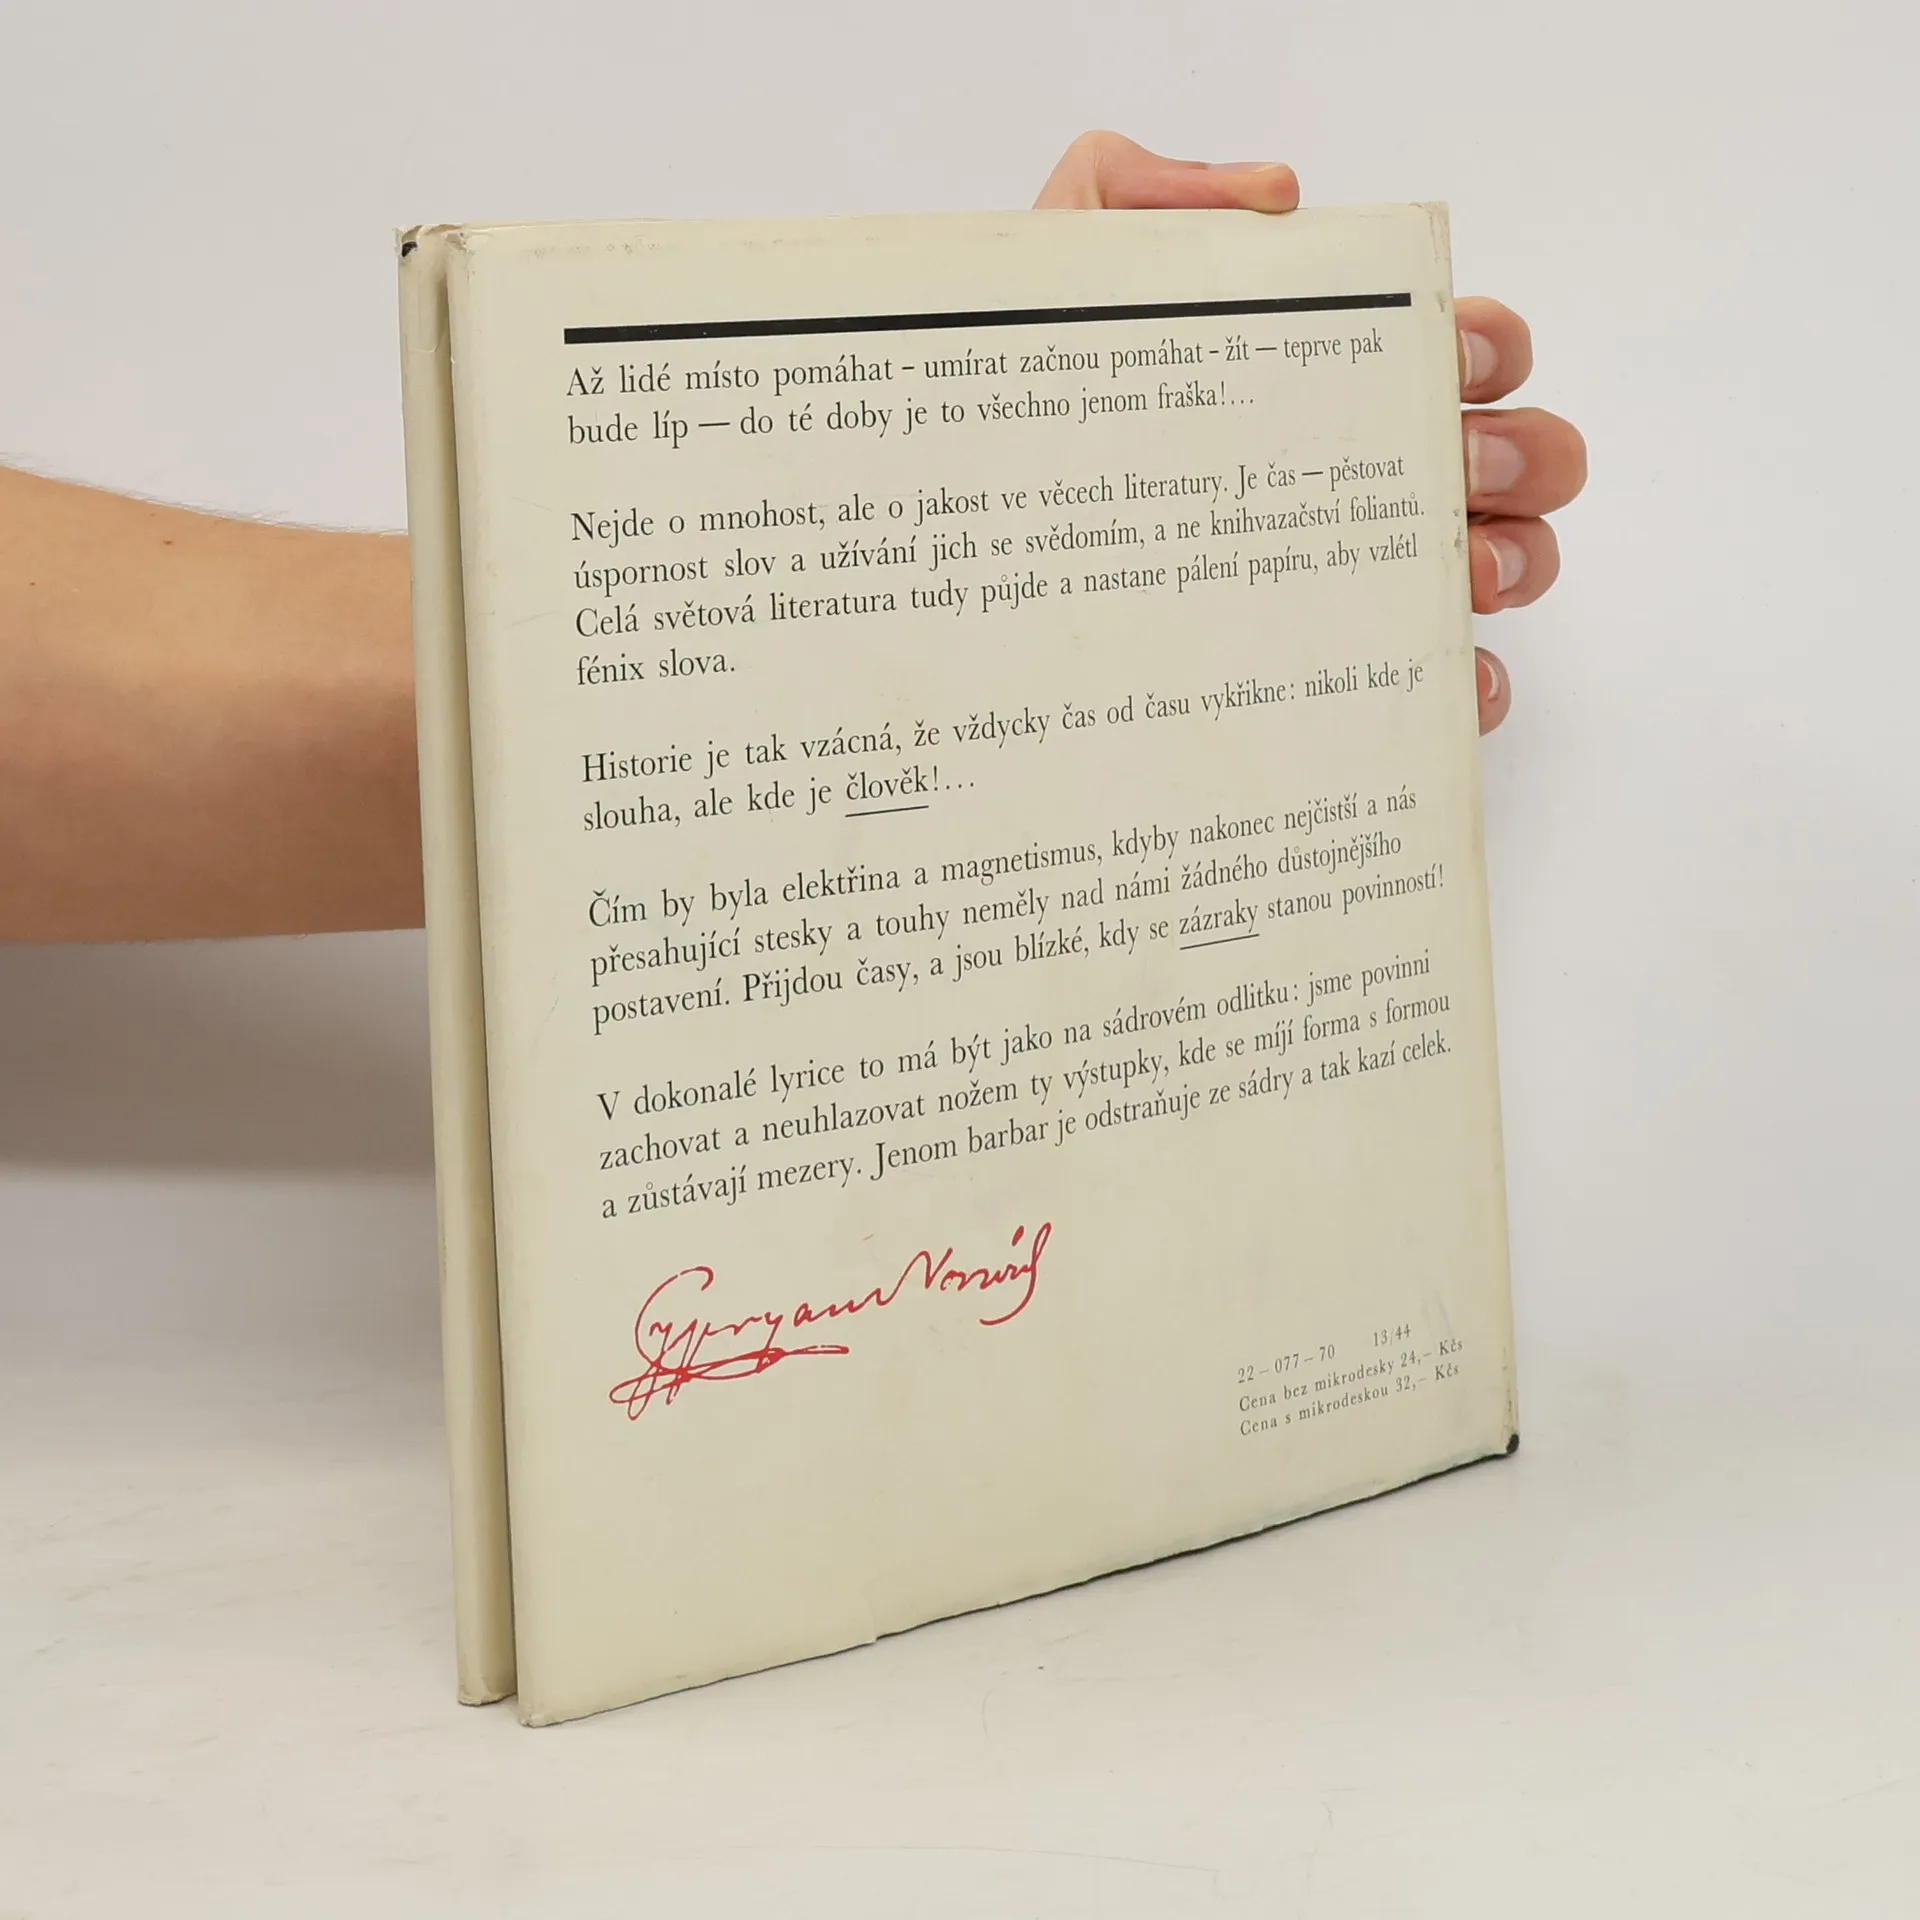 Až lidé místo pomáhat - umírat začnou pomáhat - žít — teprve pak
bude líp — do té doby je to všechno jenom fraška!...
Nejde o mnohost, ale o jakost ve věcech literatury. Je čas — pěstovat
úspornost slov a užívání jich se svědomím, a ne knihvazačství foliantů.
Celá světová literatura tudy půjde a nastane pálení papíru, aby vzlétl
fénix slova.
Historie je tak vzácná, že vždycky čas od času vykřikne: nikoli kde je
slouha, ale kde je člověk!...
Čím by byla elektřina a magnetismus, kdyby nakonec nejčistší a nás
přesahující stesky a touhy neměly nad námi žádného důstojnějšího
postavení. Přijdou časy, a jsou blízké, kdy se zázraky stanou povinností!
V dokonalé lyrice to má být jako na sádrovém odlitku: jsme povinni
zachovat a neuhlazovat nožem ty výstupky, kde se míjí forma s formou
a zůstávají mezery. Jenom barbar je odstraňuje ze sádry a tak kazí celek.
Cypryan Norwid
22 – 077 – 70 13/44
Cena bez mikrodesky 24,– Kčs
Cena s mikrodeskou 32,– Kčs